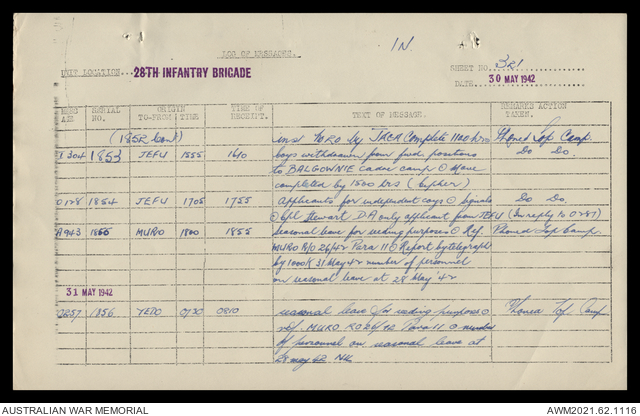 LOG OF MESSAGES.
IN
UNIT LOCATION... 28TH INFANTRY BRIGADE
SHEET NO. 3R1
DATE 30 MAY 1942
MESSAGE SERIAL NO. ORIGIN TO-FROM TIME TIME OF RECEIPT. TEXT OF MESSAGE. REMARKS ACTION TAKEN.
(1852 Cont) by Complete 1100 hrs Phoned Camp.
1304 1853 JEFU 1555 1610 withdrawn from positions Do Do.
to BALGOWNIE camp
completed by 1500 hrs (Cipher)
0128 1854 JEFU 1705 1755 Applicants for independent coys Signals Do Do.
Stewart D.A only applicant from JEFU (In reply to 0287)
A943 1855 MURO 1800 1855 Seasonal leave for seeding purposes Ref. Phoned Camp.
MURO R/O 26/42 Para 11 Report by telegraph
by 1000K 31 May 42 number of personnel
on seasonal leave at 28 May '42
31 MAY 1942
1856 0730 0810 seasonal leave for seeding purposes Camp.
ref. MURO RO 26/42 Para 11 number
of personnel on seasonal leave at
28 may 42
AUSTRALIAN WAR MEMORIAL
AWM2021.62.1116